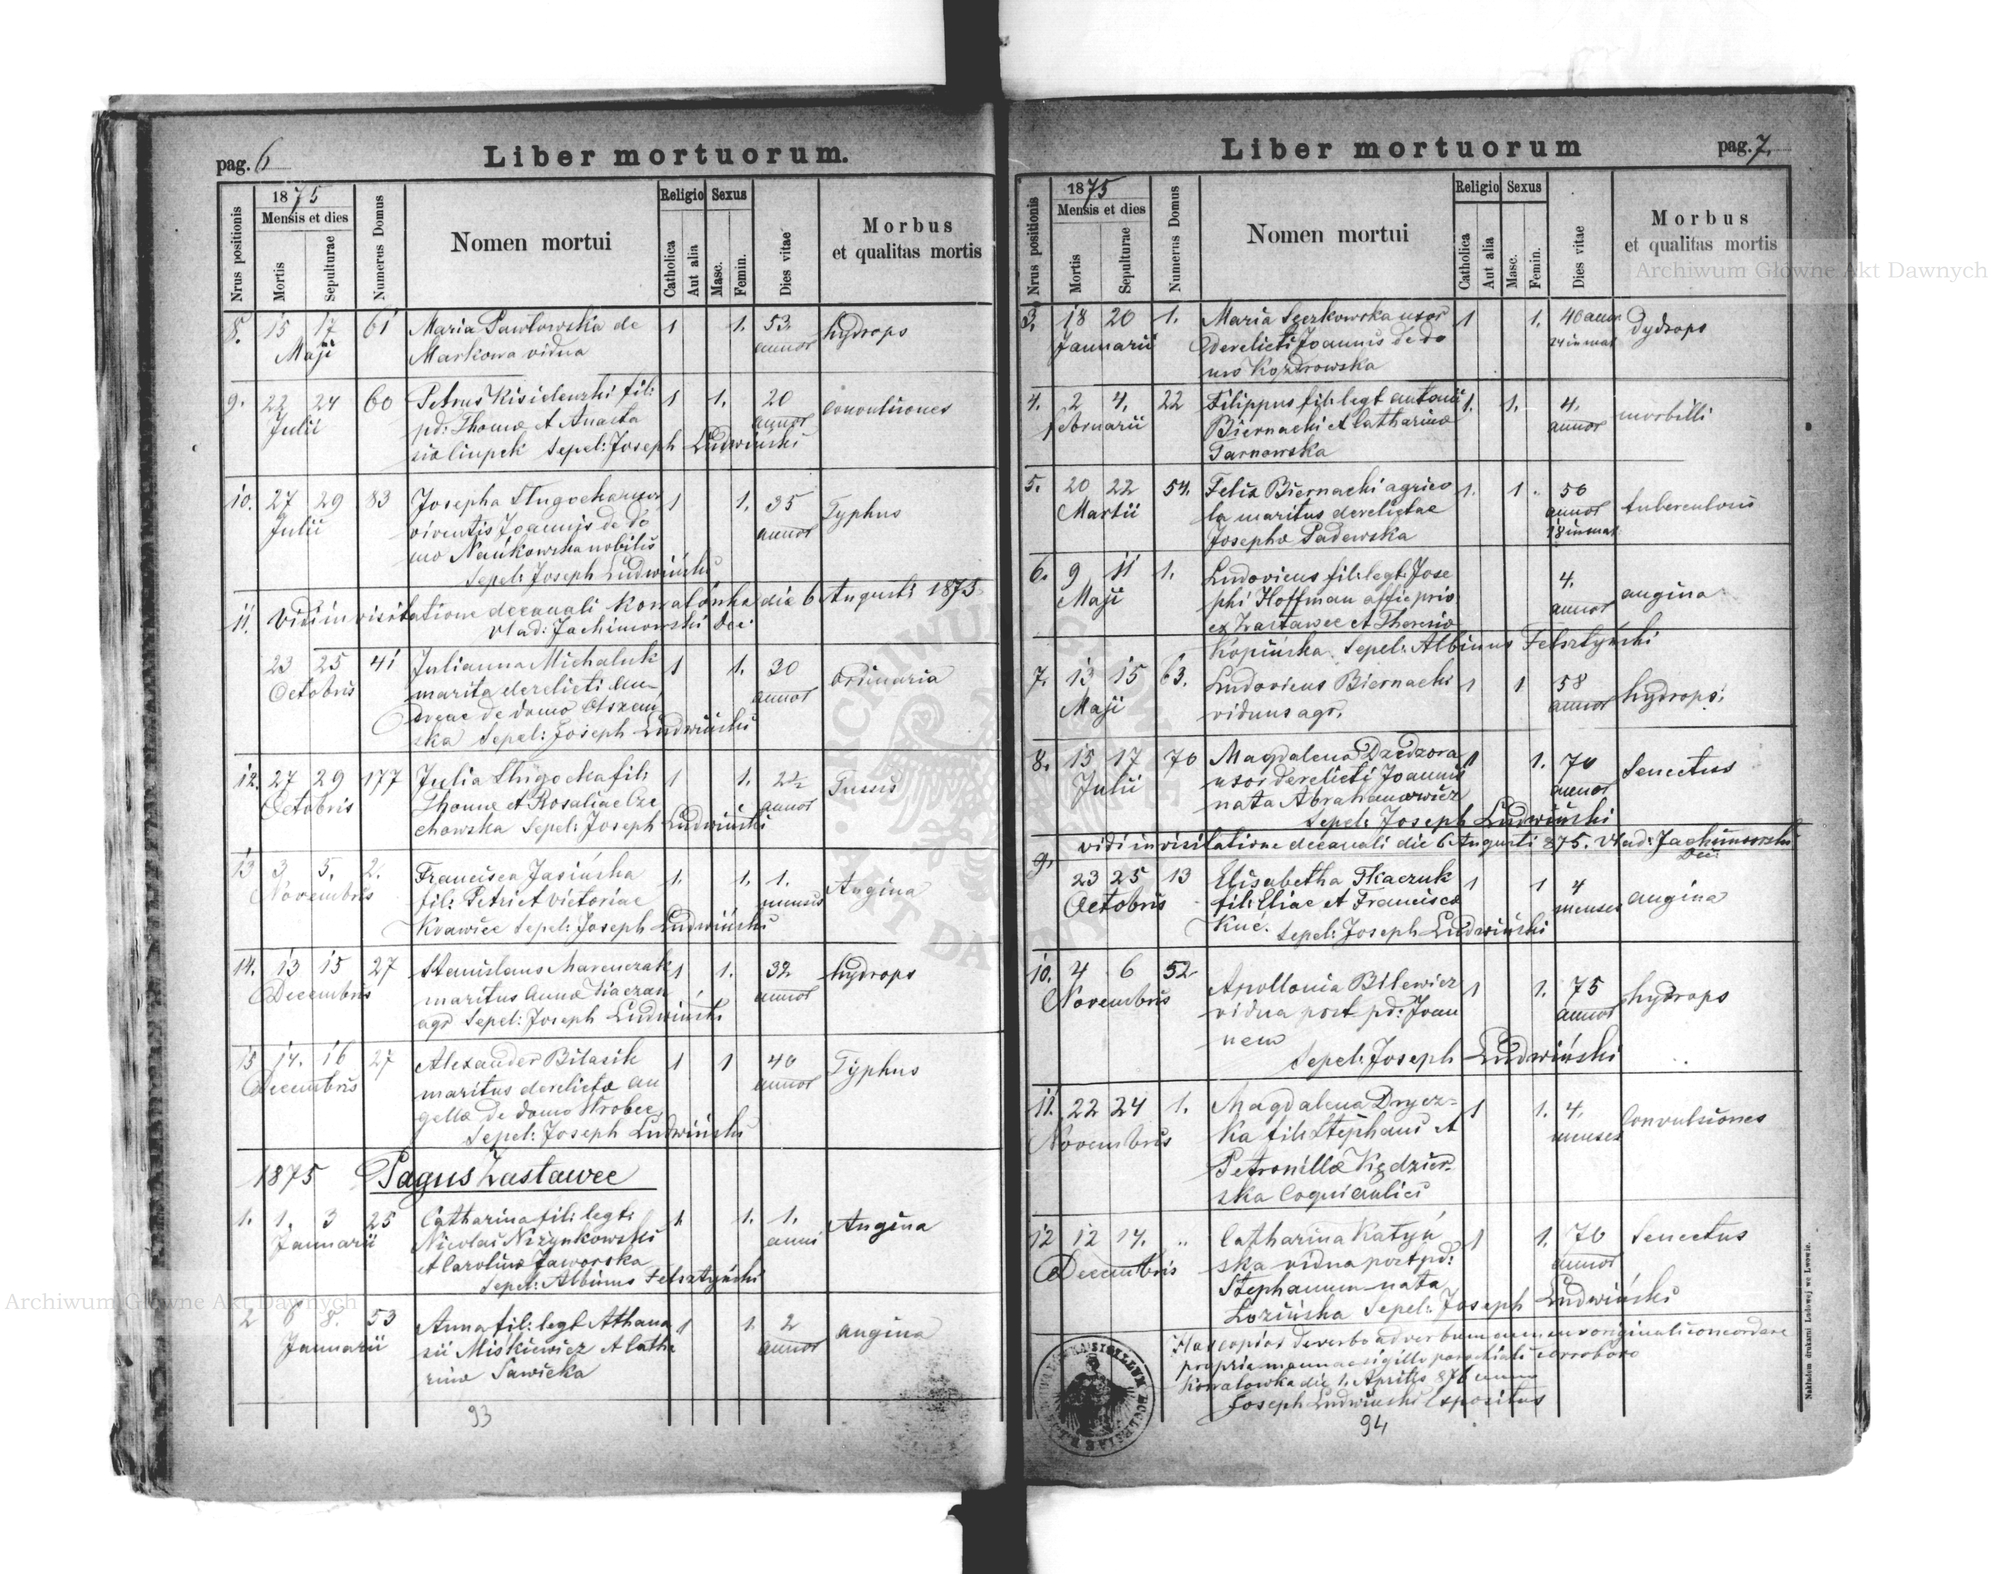 pag. 6
Liber mortuorum.
Nrus positionis
1875
Mensis et dies
Mortis
Sepulturae
Numerus Domus
Nomen mortui
Religio
Catholica
Aut alia
Sexus
Masc.
Femin.
Dies vitae
Morbus
et qualitas mortis
8. 15 17 61 Maria Pawłowska de 1 1. 53. hydrops
Maji Markowa vidua annor
9. 22 24 60 Petrus Kisielewski fil: 1 1. 20 Convulsiones
Julii pd: Thomæ et Anasta annor
siæ Ciupek Sepel: Joseph Ludwiński
10. 27 29 83 Josepha Sługocka uxor 1 1. 35 Typhus
Julii viventis Joannis de do annor
mo Nańkowska nobilis
Sepel: Joseph Ludwiński
11. Vidi in visitatione decanali Kowalówka die 6 Augusti 1875
Vlad: Jachimowski Dec:
23 25 41 Julianna Michaluk 1 1. 30 Ordinaria
Octobris marita derelicti An annor
dreae de domo
ska Sepel: Joseph Ludwiński
12. 27 29 177 Julia Sługocka fil: 1 1. 2½ Tussis
Octobris Thomæ et Rosaliae Cze annor
chowska Sepel: Joseph Ludwiński
13 3 5. 2. Francisca Jasińska 1. 1. 1. Angina
Novembris fil: Petri et Victoriae mensis
Krawiec Sepel: Joseph Ludwiński
14. 13 15 27 Stanislaus Marcuczak 1 1. 32 hydrops
Decembris maritus Annæ annor
agr Sepel: Joseph Ludwiński
15 14. 16 27 Alexander Bilasik 1 1 40 Typhus
Decembris maritus derelictæ An annor
gellæ de domo Strobec
Sepel: Joseph Ludwiński
1875 Pagus Zastawce
1. 1. 3 25 Catharina fil: legt: 1. 1. 1. Angina
Januarii Nicolai Niżynkowski anni
et Carolinæ Jaworska
Sepel: Albinus Felsztyński
2 6 8. 53 Anna fil: legt Athana 1 1. 2 angina
Januarii sii Miśkiewicz et Catha annor
rinæ Sawicka
93
Liber mortuorum
pag. 7.
Nrus positionis
1875
Mensis et dies
Mortis
Sepulturae
Numerus Domus
Nomen mortui
Religio
Catholica
Aut alia
Sexus
Masc.
Femin.
Dies vitae
Morbus
et qualitas mortis
Archiwum Główne Akt Dawnych
3. 18 20 1. Maria uxor 1 1. 40 ann. hydrops
Januarii derelicti Joannis de do
mo
4. 2 4. 22 Filippus fil: legt Antonii 1. 1. 4. morbilli
Februarii Biernacki et Catharinæ annor
Tarnowska
5. 20 22 54. Felix Biernacki agrico 1. 1 50 tuberculosis
Martii la maritus derelictae annor
Josephæ Padewska
6. 9 11 1. Ludovicus fil: legt: Jose 4. angina
Maji phi Hoffman annor
ex Zastawce et Theresiæ
Kopińska Sepel: Albinus Felsztyński
7. 13 15 63. Ludovicus Biernacki 1 1 58 hydrops.
Maji viduus agr. annor
8. 15 17 70 Magdalena Dzedzora 1 1. 70 Senectus
Julii uxor derelicti Joannis annor
nata Abrahamowicz
Sepel: Joseph Ludwiński
9. Vidi in visitatione decanali die 6 Augusti 875. Vlad: Jachimowski
Dec:
23 25 13 Elisabetha Tkaczuk 1 1 4 angina
Octobris fil: Eliae et Franciscæ menses
Kuć. Sepel: Joseph Ludwiński
10. 4 6 52 Apollonia Bilewicz 1 1. 75 hydrops
Novembris vidua post pd: Joan annor
nem
Sepel: Joseph Ludwiński
11. 22 24 1. Magdalena Drycz= 1 1. 4. Convulsiones
Novembris ka fil: Stephani et menses
Petronillæ Kędzier-
ska
12 12 14. " Catharina Katyń 1 1. 70 Senectus
Decembris ska vidua post pd: annor
Stephanum nata
Łozińska Sepel: Joseph Ludwiński
Has copias de verbo ad verbum cum suo originali concordare
propria manu ac sigillo parochiali corroboro
Kowalówka die 1. Aprilis 876
Joseph Ludwiński Expositus
94
Nakładem drukarni Ludowej we Lwowie.
Archiwum Główne Akt Dawnych